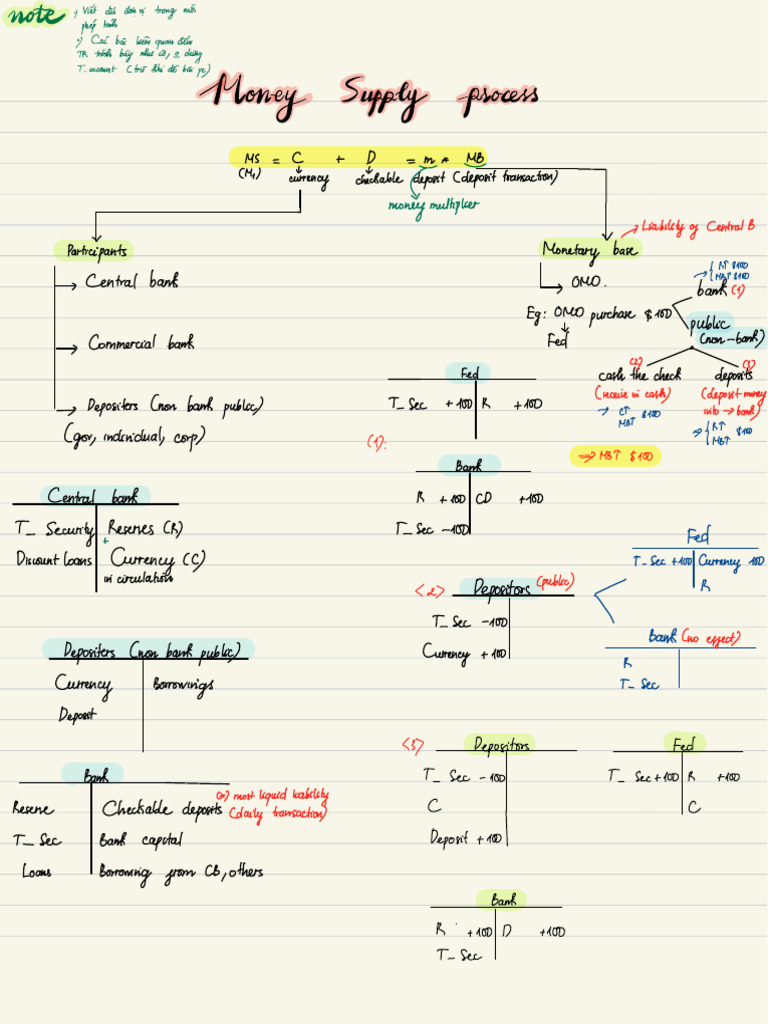 note
→ Viết dấu đơn vị trong mỗi
phép tính
→) Các bài liên quan đến
TR trình bày như cũ, o dùng
T_account (trừ khi đề bài yc)
Money Supply process
MS = C + D = m * MB
(M₁) currency checkable deposit (deposit transaction)
money multiplier
→ Liability of Central B
Participants
Monetary base
→ Central bank
→ OMO.
{ R↑ $100
MB↑ $100
bank (1)
Eg: OMO purchase $100
Fed
public
(non-bank)
→ Commercial bank
(2) (3)
cash the check deposits
(receive in cash) (deposit money
into → bank)
→ C↑
MB↑ $100
→ { R↑ $100
MB↑
⇒ MB↑ $100
→ Depositers (non bank public)
(gov, individual, corp)
(1):
Fed
T_Sec +100 R +100
Bank
R +100 CD +100
T_Sec -100
Central bank
T_ Security Reserves (R)
+
Discount loans Currency (C)
in circulation
<2> Depositors (public)
T_ Sec -100
Currency +100
Fed
T_ Sec +100 Currency 100
R
Bank (no effect)
R
T_ Sec
Depositers (non bank public)
Currency Borrowings
Deposit
<3> Depositors
T_ Sec -100
C
Deposit +100
Fed
T_ Sec +100 R +100
C
Bank
Reserve Checkable deposits most liquid liability
(daily transaction)
T_ Sec Bank capital
Loans Borrowing from CB, others
Bank
R +100 D +100
T_ Sec